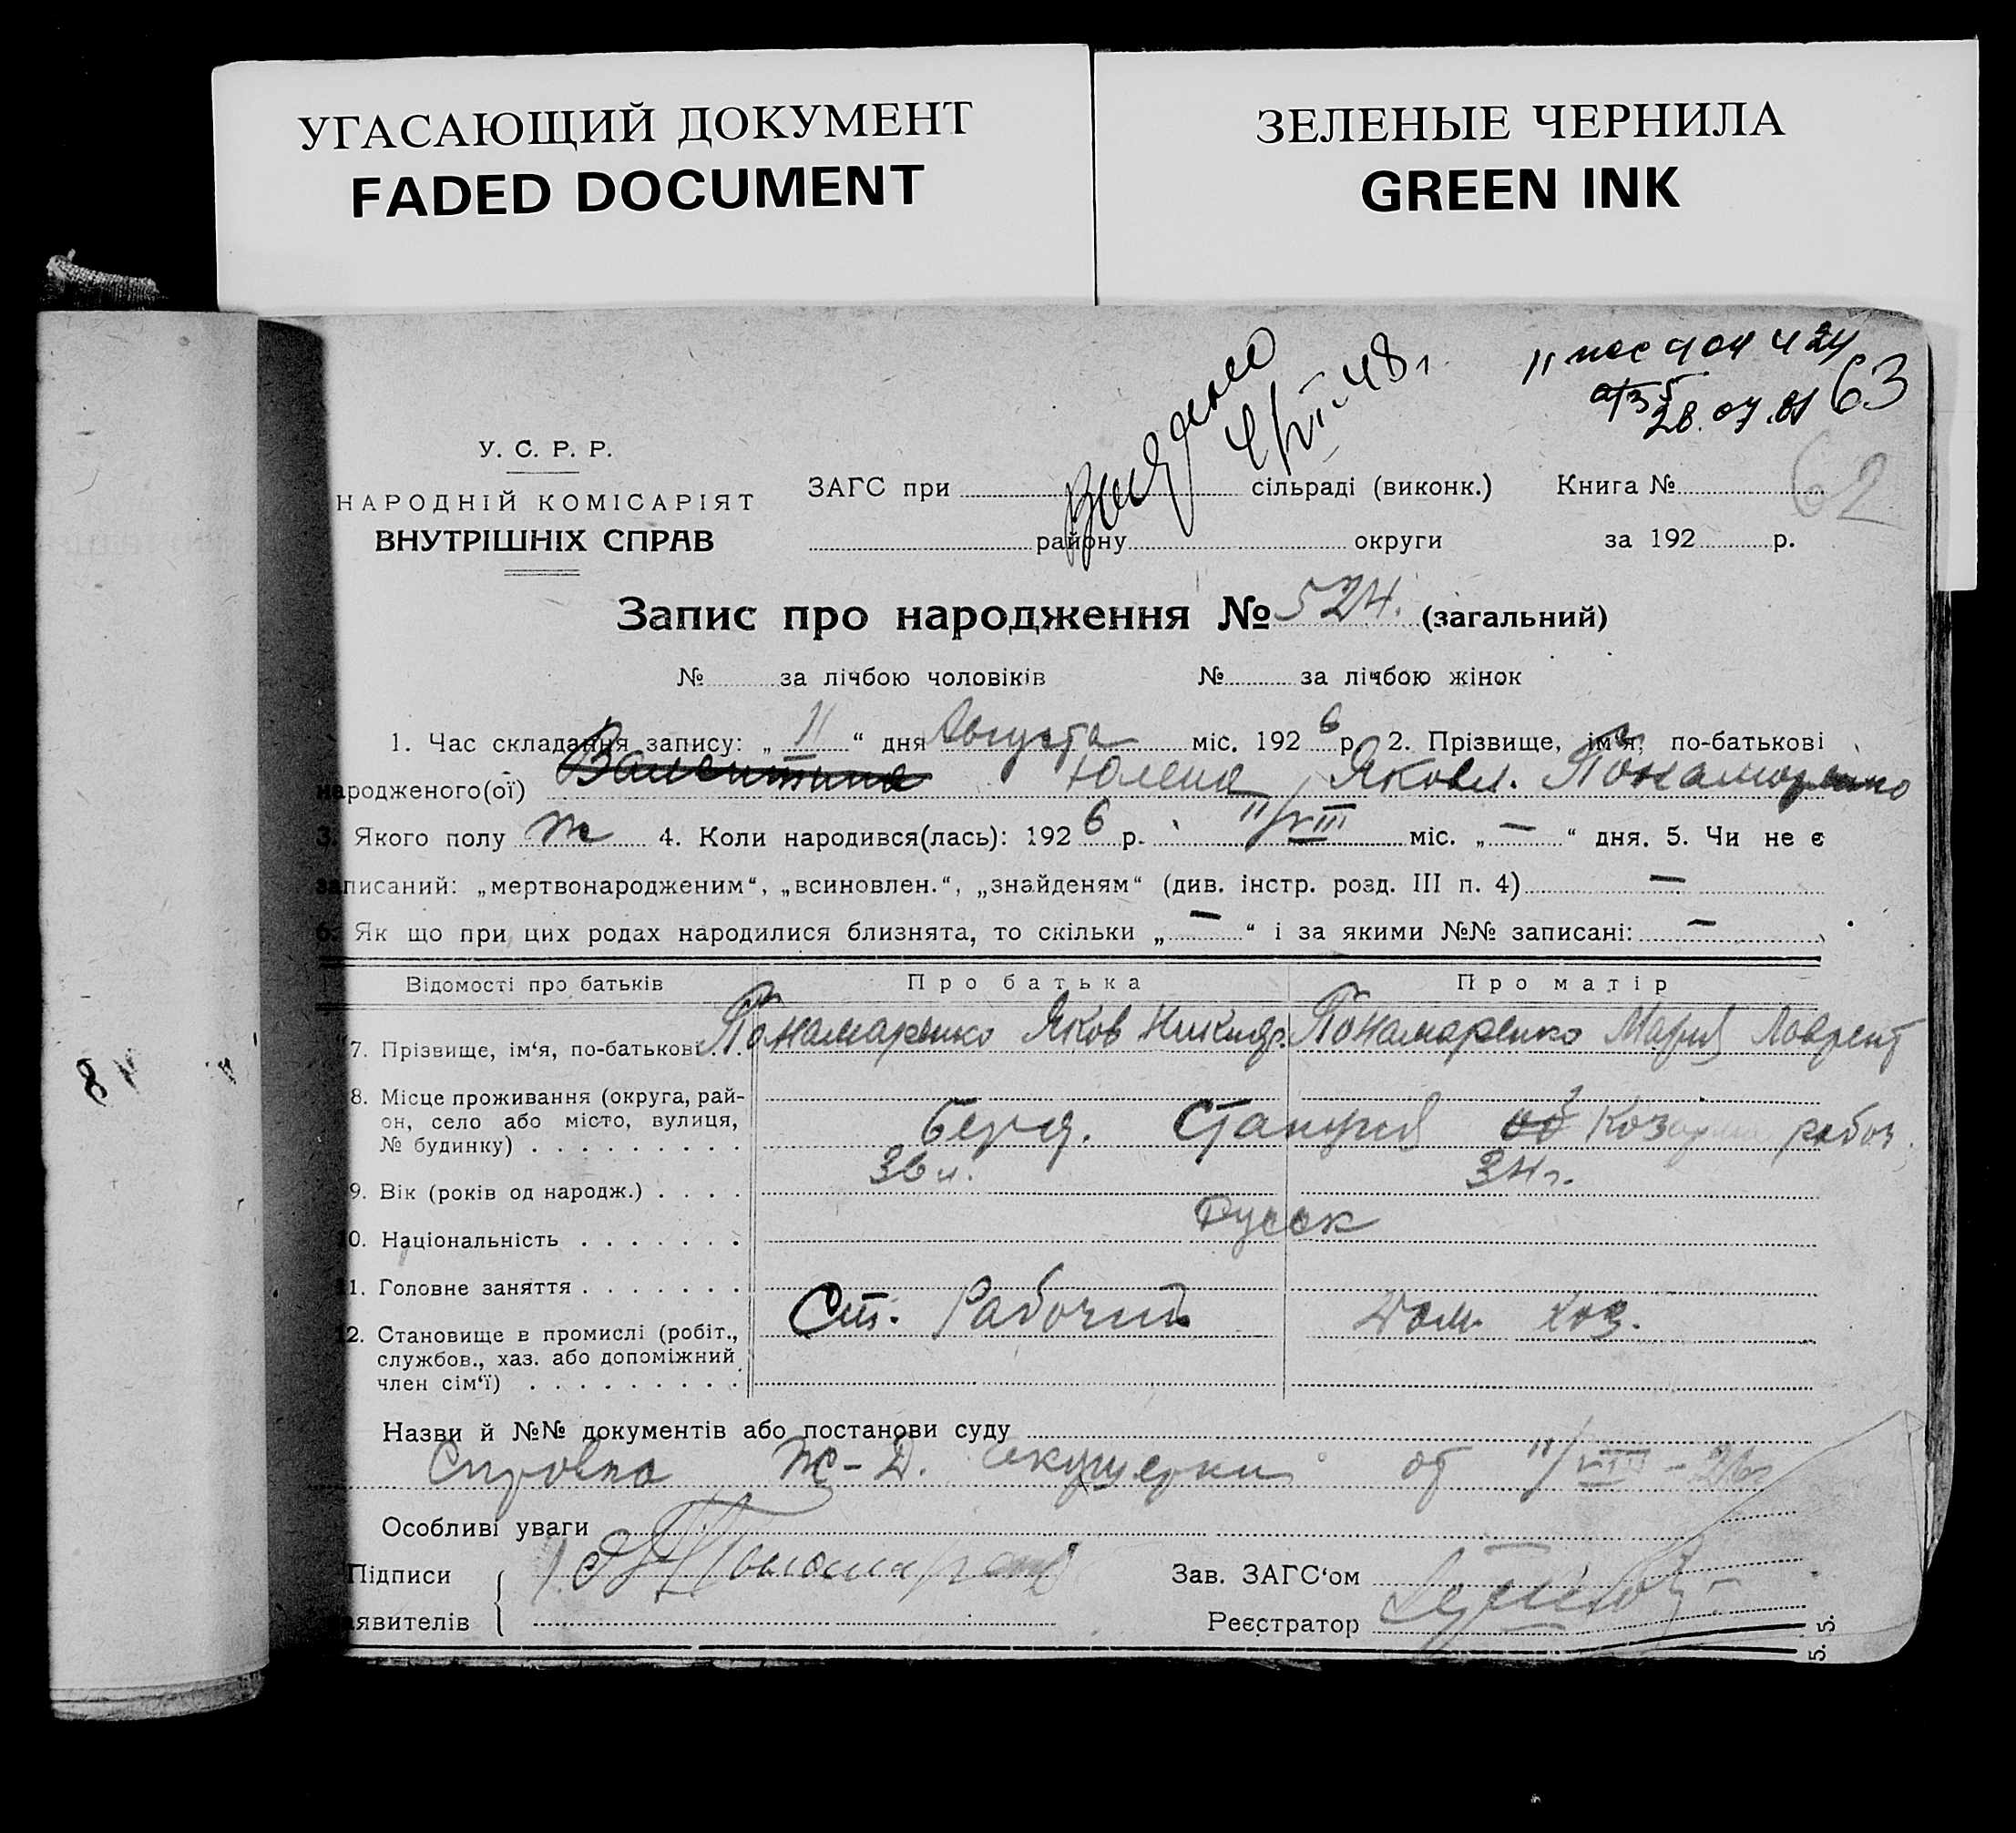 УГАСАЮЩИЙ ДОКУМЕНТ
FADED DOCUMENT
ЗЕЛЕНЫЕ ЧЕРНИЛА
GREEN INK
28.07.81
63
62
Выдано
4/VI-48 г.
У. С. Р. Р.
НАРОДНІЙ КОМІСАРІЯТ
ВНУТРІШНІХ СПРАВ
ЗАГС при сільраді (виконк.) Книга №
району округи за 192 р.
Запис про народження № 524. (загальний)
№ за лічбою чоловіків № за лічбою жінок
1. Час складання запису: „ 11 “ дня Августа міс. 192 6 р. 2. Прізвище, ім'я, по-батькові
народженого(ої) Валентина Юлена Яковл. Понамаренко
3. Якого полу ж 4. Коли народився(лась): 192 6 р. 11/VIII міс. „ — “ дня. 5. Чи не є
записаний: „мертвонародженим“, „всиновлен.“, „знайденям“ (див. інстр. розд. III п. 4) —
6. Як що при цих родах народилися близнята, то скільки „ — “ і за якими №№ записані: —
Відомості про батьків Про батька Про матір
7. Прізвище, ім‘я, по-батькові . . Понамаренко Яков Никидр. Понамаренко Мария Лаврент
8. Місце проживання (округа, рай-
он, село або місто, вулиця,
№ будинку) . . . . . . . . . Берд. Станция Козарма рабоч.
9. Вік (років од народж.) . . . . 36 л. 34 г.
10. Національність . . . . . . . Русск
11. Головне заняття . . . . . . .
12. Становище в промислі (робіт., Ст. Рабочий Дом. хоз.
службов., хаз. або допоміжний
член сім‘ї) . . . . . . . . .
Назви й №№ документів або постанови суду
Справка Ж-Д. акушерки от 11/VIII-26г
Особливі уваги
Підписи
заявителів
Зав. ЗАГС‘ом
Реєстратор
5. 5.